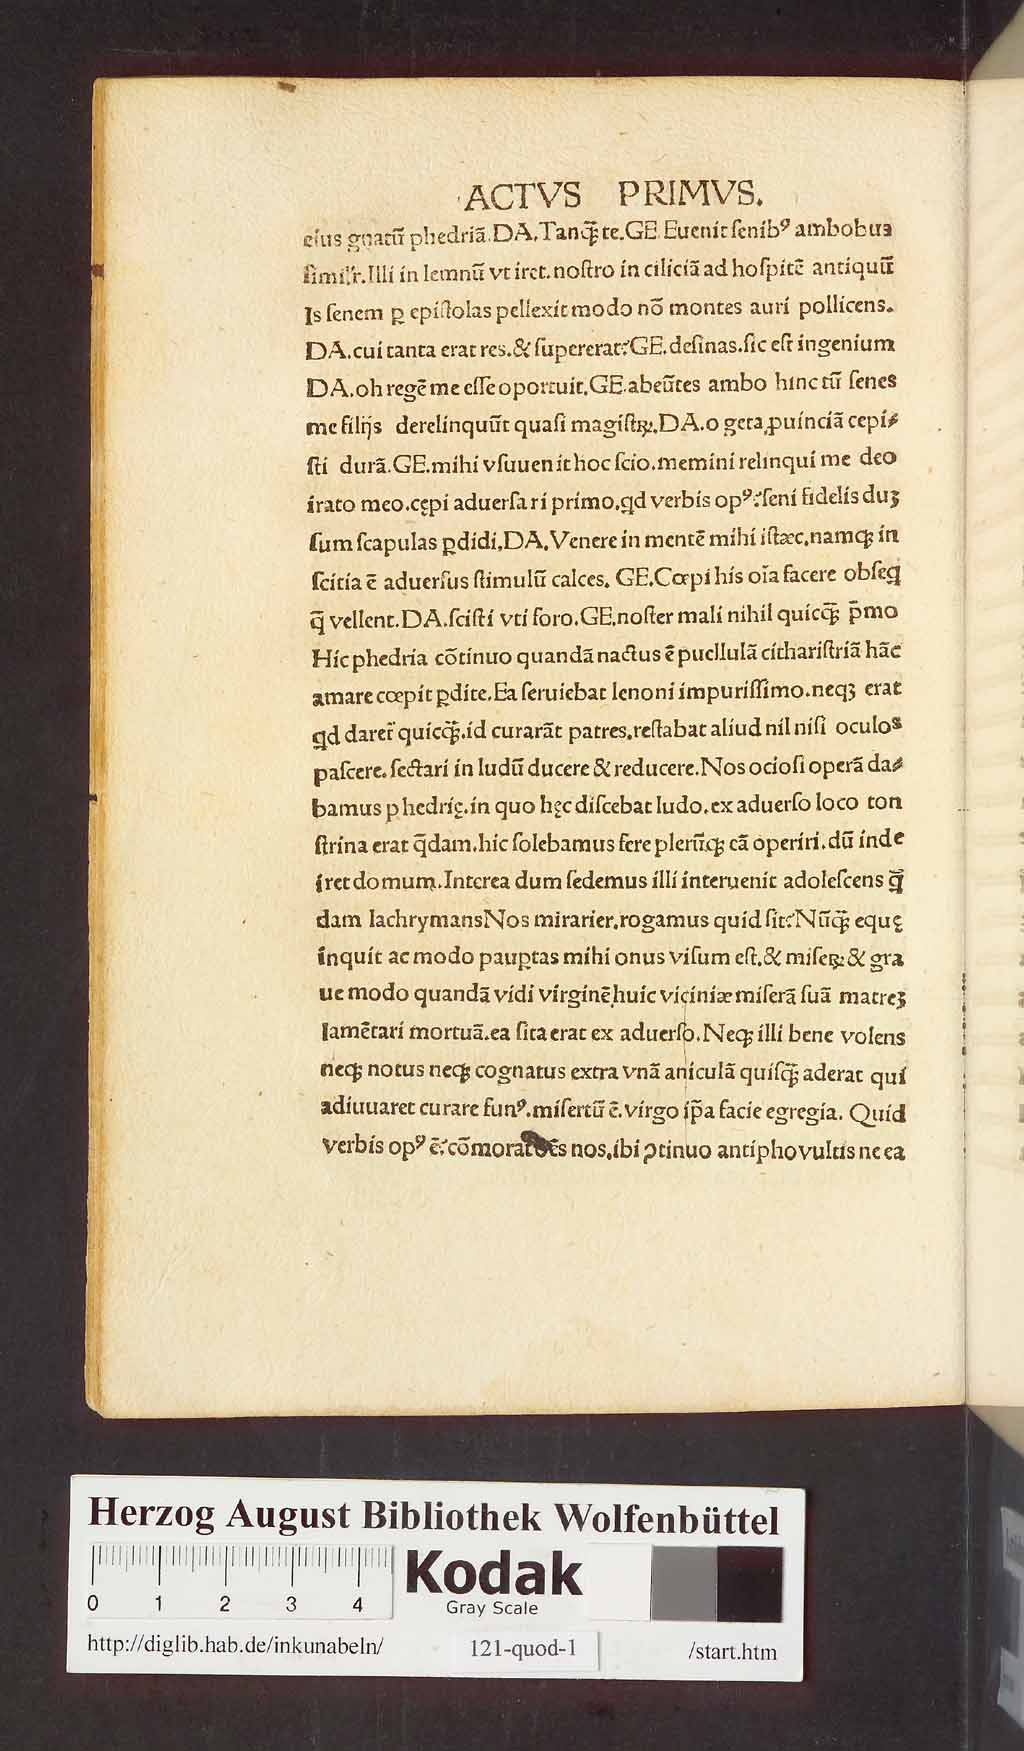 ACTVS PRIMVS.
eius gnatū phedriā. DA. Tanqꝫ̄ te. GE. Euenit ſenibꝰ ambobus
ſimilr̄. Illi in lemnū vt iret. noſtro in ciliciā ad hoſpitē antiquū
Is ſenem ꝑ epiſtolas pellexit modo nō montes auri pollicens.
DA. cui tanta erat res. & ſupererat? GE. deſinas. ſic eſt ingenium
DA. oh regē me eſſe oportuit. GE. abeūtes ambo hinc tū ſenes
me filijs derelinquūt quaſi magiſtꝝ. DA. o geta ꝓuinciā cepi⸗
ſti durā. GE. mihi vſuuenit hoc ſcio. memini relinqui me deo
irato meo. cępi aduerſari primo. qd verbis opꝰ? ſeni fidelis duꝫ
ſum ſcapulas ꝑdidi. DA. Venere in mentē mihi iſtæc. namqꝫ in
ſcitia ē aduerſus ſtimulū calces. GE. Cœpi his oīa facere obſeq
q̄ vellent. DA. ſciſti vti foro. GE. noſter mali nihil quicqꝫ̄ p̄mo
Hic phedria cōtinuo quandā nactus ē puellulā cithariſtriā hāc
amare cœpit ꝑdite. Ea ſeruiebat lenoni impuriſſimo. neqꝫ erat
qd daret̄ quicqꝫ̄. id curarāt patres. reſtabat aliud nil niſi oculos
paſcere. ſectari in ludū ducere & reducere. Nos ocioſi operā da⸗
bamus phedrię. in quo hęc diſcebat ludo. ex aduerſo loco ton
ſtrina erat q̄dam. hic ſolebamus fere plerūqꝫ eā operiri. dū inde
iret domum. Interea dum ſedemus illi interuenit adoleſcens q̄
dam lachrymans Nos mirarier. rogamus quid ſit? Nūqꝫ̄ equę
inquit ac modo pauꝑtas mihi onus viſum eſt. & miſeꝝ & gra
ue modo quandā vidi virginē huic viciniæ miſerā ſuā matreꝫ
lamētari mortuā. ea ſita erat ex aduerſo. Neqꝫ illi bene volens
neqꝫ notus neqꝫ cognatus extra vnā aniculā quiſqꝫ̄ aderat qui
adiuuaret curare funꝰ. miſertū ē. virgo ip̄a facie egregia. Quid
verbis opꝰ ē? cōmorat oēs nos. ibi ꝯtinuo antipho vultis ne ea
Herzog August Bibliothek Wolfenbüttel
0 1 2 3 4
Kodak
Gray Scale
http://diglib.hab.de/inkunabeln/ 121-quod-1 /start.htm